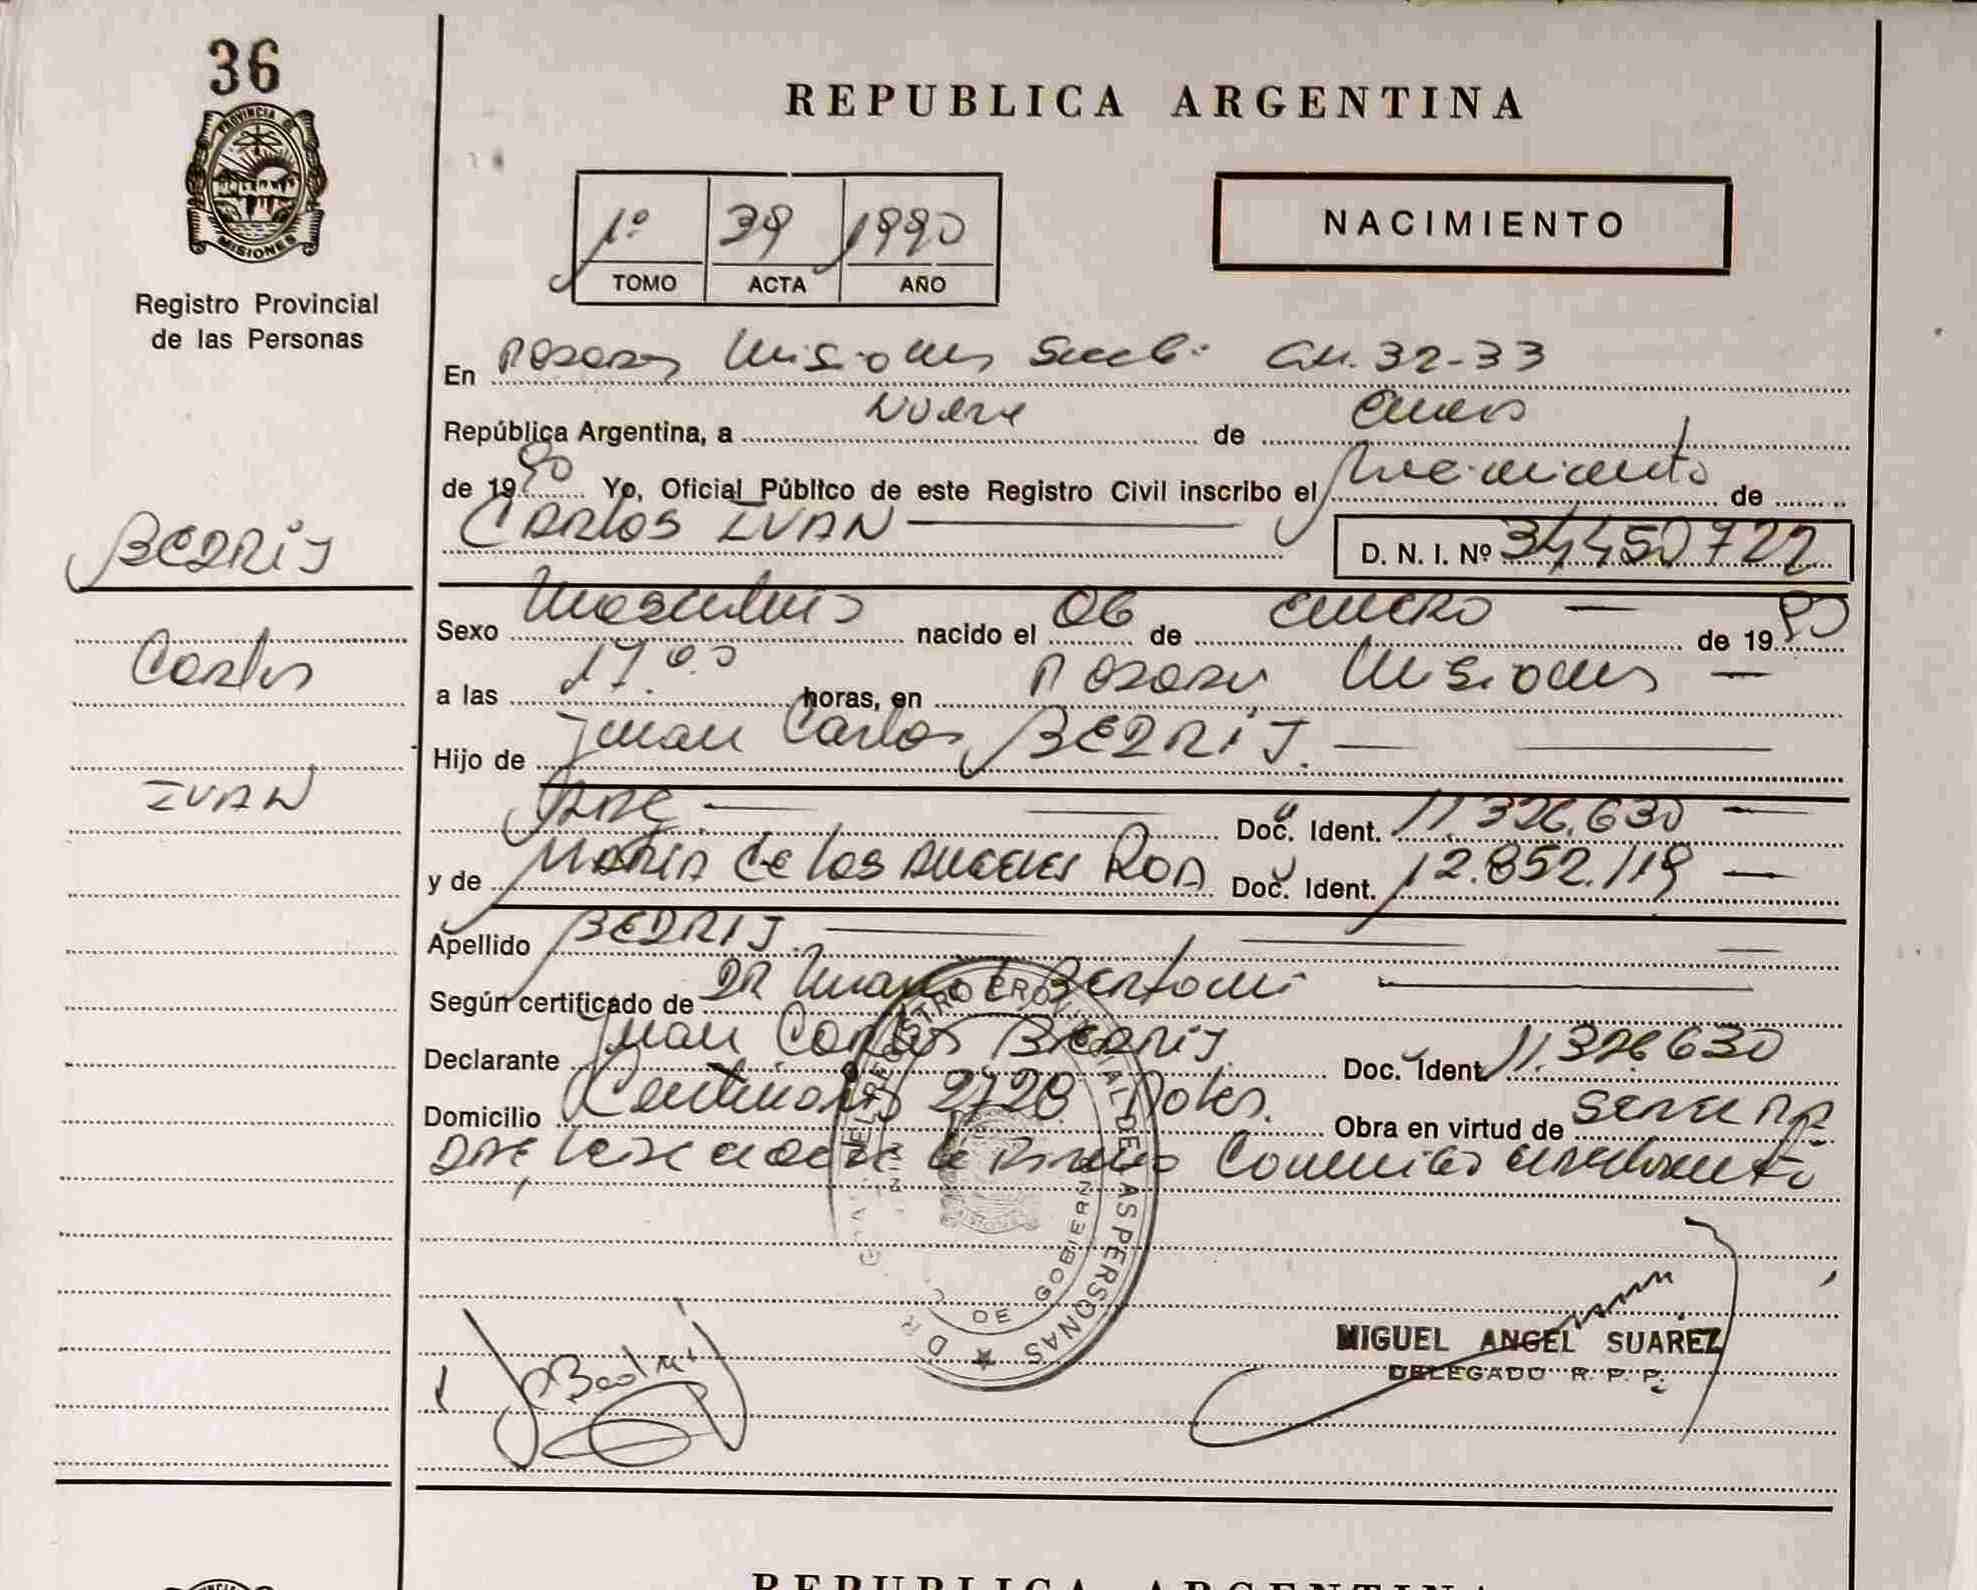 36
PROVINCIA DE
MISIONES
Registro Provincial
de las Personas
REPUBLICA ARGENTINA
1º 39 1990
TOMO ACTA AÑO
NACIMIENTO
En Posadas Misiones Secc. 32-33
República Argentina, a nueve de enero
de 1990 Yo, Oficial Público de este Registro Civil inscribo el nacimiento de
CARLOS IVAN
D. N. I. Nº 34450722
BEDRIJ
Carlos
IVAN
Sexo Masculino nacido el 06 de enero de 1990
a las 17.00 horas, en Posadas Misiones
Hijo de Juan Carlos BEDRIJ.
ARG. Doc. Ident. 11.326.630
y de MARIA de los ANGELES ROA Doc. Ident. 12.852.119
Apellido BEDRIJ
Según certificado de DR
Declarante Juan Carlos BEDRIJ. Doc. Ident. 11.326.630
Domicilio Centenario 2728 Pdas. Obra en virtud de
MIGUEL ANGEL SUAREZ
DELEGADO R. P. P.
REPUBLICA ARGENTINA